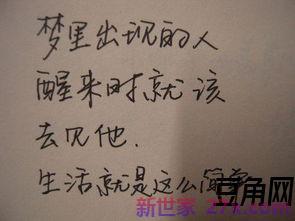 梦里出现的人
醒来时就该
去见他.
生活就是这么简单
豆角网
新世家 271.com